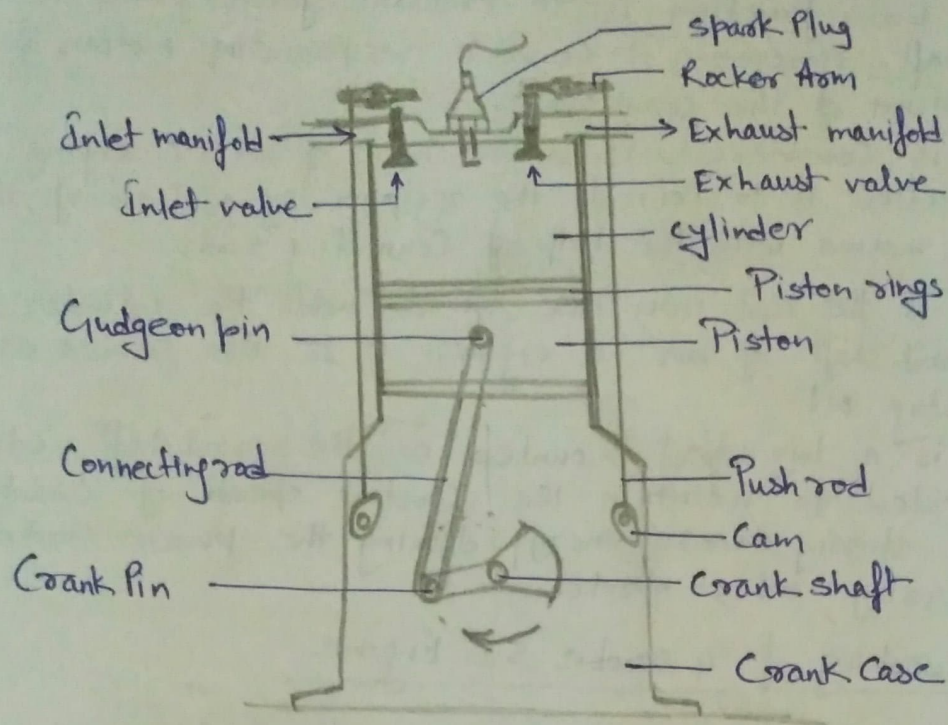 Spark Plug
Rocker Arm
Inlet manifold
Exhaust manifold
Inlet valve
Exhaust valve
cylinder
Piston rings
Gudgeon pin
Piston
Connecting rod
Push rod
Cam
Crank Pin
Crank shaft
Crank Case